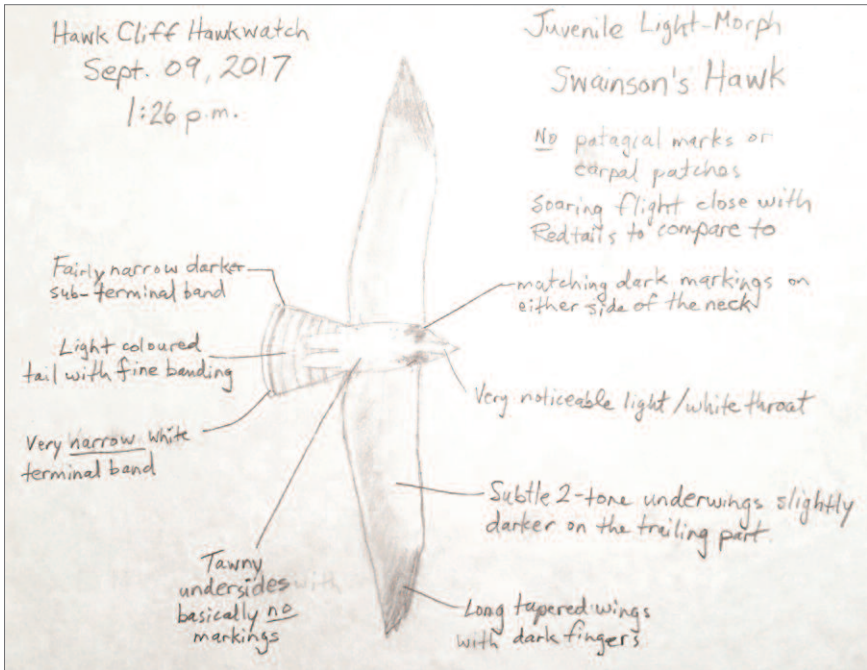 Hawk Cliff Hawkwatch
Sept. 09, 2017
1:26 p.m.
Juvenile Light-Morph
Swainson's Hawk
No patagial marks or
carpal patches
Soaring flight close with
Redtails to compare to
Fairly narrow darker
sub-terminal band
Light coloured
tail with fine banding
Very narrow white
terminal band
matching dark markings on
either side of the neck
Very noticeable light/white throat
Subtle 2-tone underwings slightly
darker on the trailing part.
Tawny
undersides
basically no
markings
Long tapered wings
with dark fingers